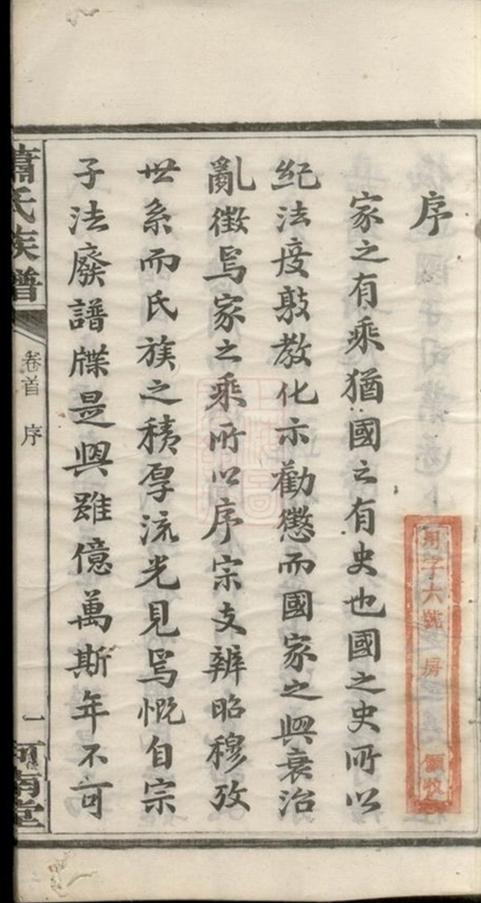 序
家之有乘猶國之有史也國之史所以
紀法度敦教化示勸懲而國家之興衰治
亂徵焉家之乘所以序宗支辨昭穆攷
世系而氏族之積厚流光見焉慨自宗
子法廢譜牒是興雖億萬斯年不可
蕭氏族譜
卷首 序
一
河南堂
字六號 房 領收